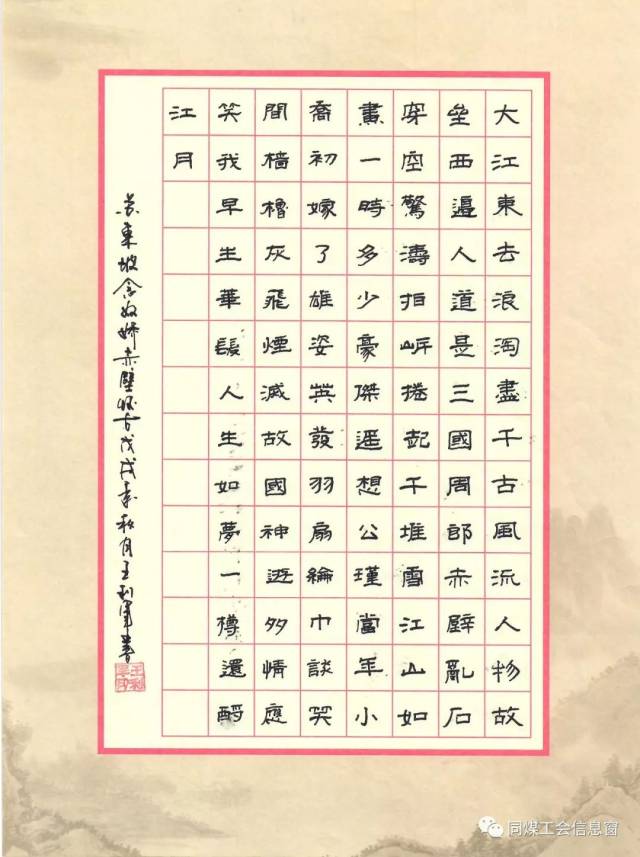 大江東去浪淘盡千古風流人物故
壘西邊人道是三國周郎赤壁亂石
穿空驚濤拍岸捲起千堆雪江山如
畫一時多少豪傑遥想公瑾當年小
喬初嫁了雄姿英發羽扇綸巾談笑
間檣櫓灰飛煙滅故國神遊多情應
笑我早生華髮人生如夢一樽還酹
江月
苏東坡念奴娇赤壁怀古戊戌年秋月王利军書
同煤工会信息窗